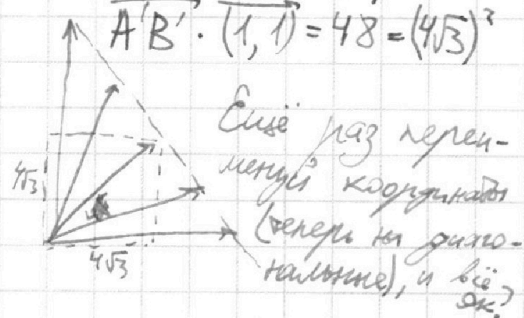 A'B' · (1,1) = 48 = (4√3)²
Ещё раз переи-
менуй координаты
(теперь на диаго-
нальные), и всё
ок?
4√3
4√3